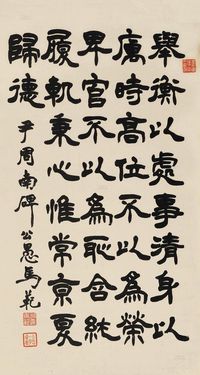 舉衡以處事清身以
厲時高位不以為榮
卑官不以為恥含純
履軌秉心惟常京夏
歸德
尹周南碑 公愚馬範